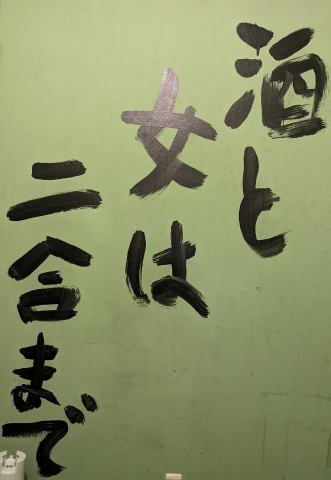 酒と
女は
二合まで